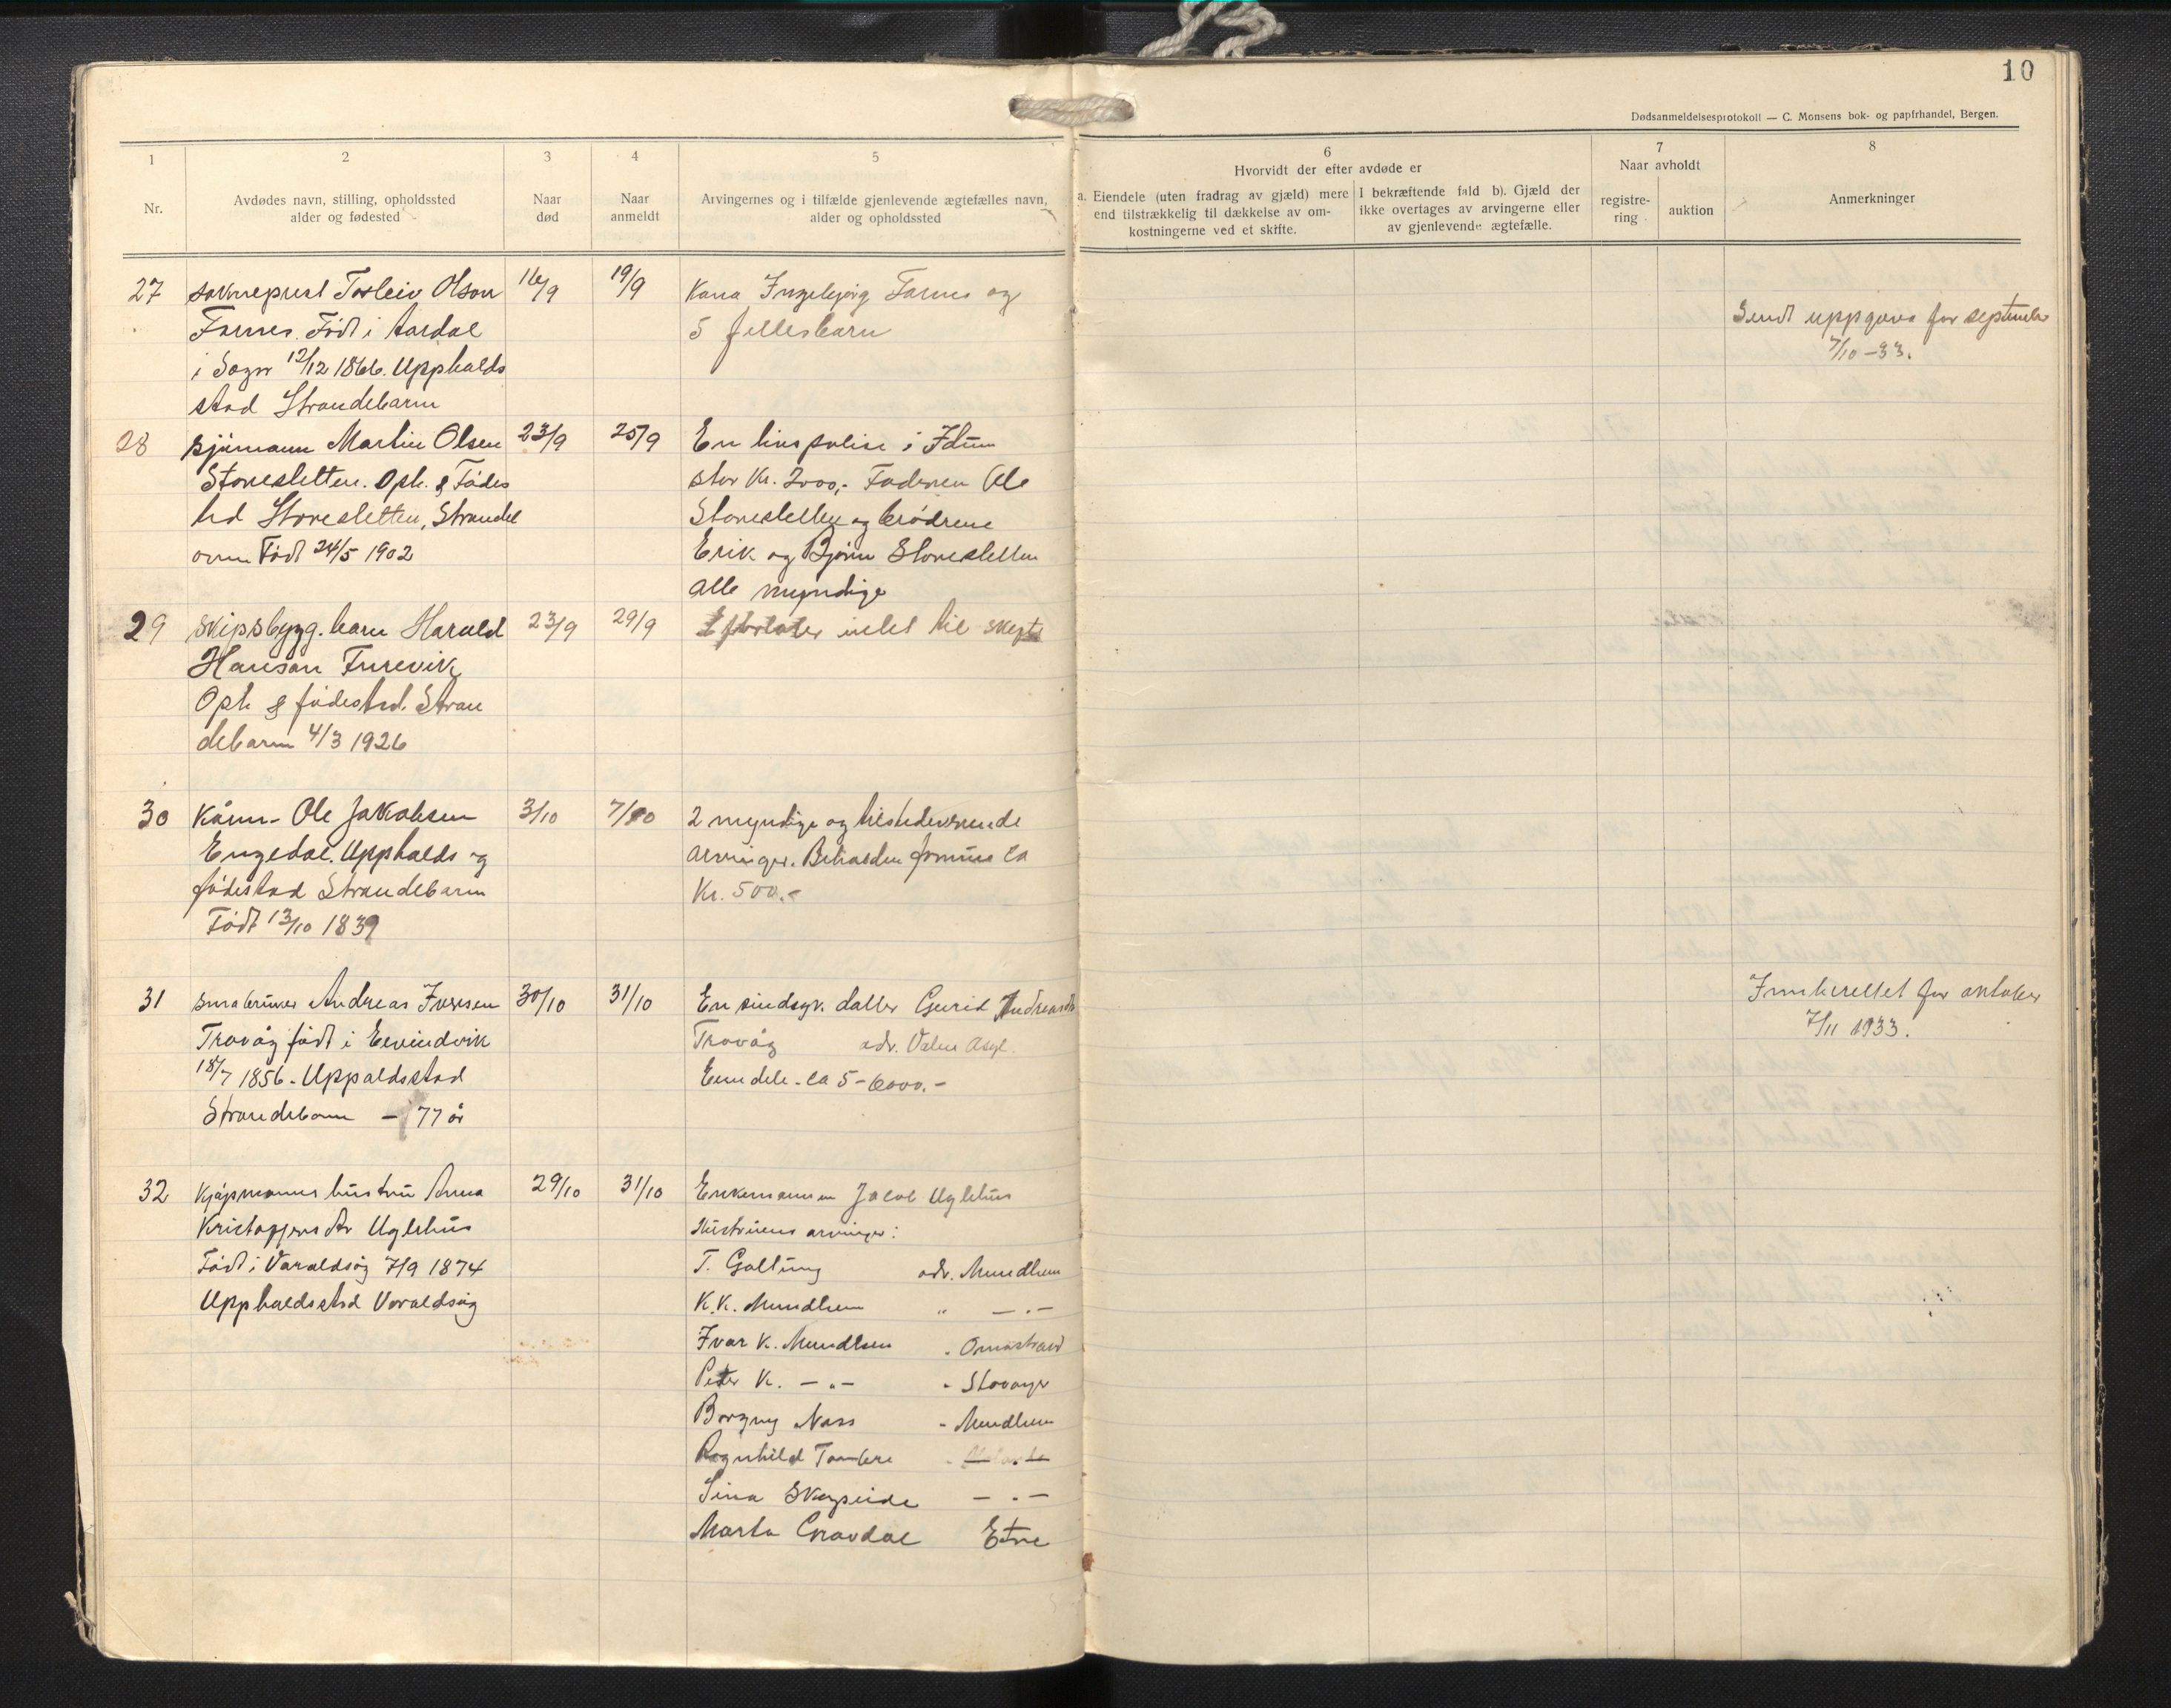 10
Dødsanmeldelsesprotokoll — C. Monsens bok- og papirhandel, Bergen.
1
Nr.
2
Avdødes navn, stilling, opholdssted
alder og fødested
3
Naar
død
4
Naar
anmeldt
5
Arvingernes og i tilfælde gjenlevende ægtefælles navn,
alder og opholdssted
6
Hvorvidt der efter avdøde er
a. Eiendele (uten fradrag av gjæld) mere
end tilstrækkelig til dækkelse av om-
kostningerne ved et skifte.
I bekræftende fald b). Gjæld der
ikke overtages av arvingerne eller
av gjenlevende ægtefælle.
7
Naar avholdt
registre-
ring
auktion
8
Anmerkninger
27
sokneprest Torleiv Olson
Farnes. Født i Aardal
i Sogn 12/12 1866. Upphalds
stad Strandebarm
16/9
19/9
Kona Ingebjørg Farnes og
5 fellesbarn
Sendt uppgava for september
7/10 -33.
28
sjømann Martin Olsen
Storesletten. Oph. & Fødes
ted Storesletten, Strandeb
arm Født 24/5 1902
23/9
25/9
En livspolise i Idun
stor Kr. 2000,- Faderen Ole
Storesletten og brødrene
Erik og Bjørn Storesletten
alle myndige
29
skipsbygg. barn Harald
Hansson Furevik
Oph & fødestad. Stran
debarm 4/3 1926
23/9
29/9
Efterlater intet til skifte
30
Kårm. Ole Jakobsen
Engedal. Upphalds og
fødestad Strandebarm
Født 13/10 1839
3/10
7/10
2 myndige og tilstedeværende
arvinger. Beholden formue ca
Kr. 500.-
31
småbruker Andreas Iversen
Trovåg født i Eivindvik
18/7 1856. Uppaldsstad
Strandebarm - 77 år
30/10
31/10
En sindsyk datter Gurid Andreasdtr
Trovåg adr. Valen Asyl.
Eiendele. ca 5-6000.-
Innberettet for oktober
7/11 1933.
32
Kjøpmanns hustru Anna
Kristoffersdtr Uglehus
Født i Varaldsøy 7/9 1874
Upphaldsstad Varaldsøy
29/10
31/10
Enkemannen Jacob Uglehus
Hustruens arvinger:
T. Galtung adr. Mundheim
K.K. Mundheim " — . —
Ivar K. Mundheim " Omastrand
Peter K. — " — " Stavanger
Borgny Nass " Mundheim
Ragnhild Tombre — . —
Sina Skogseide — . —
Marta Gravdal Etne